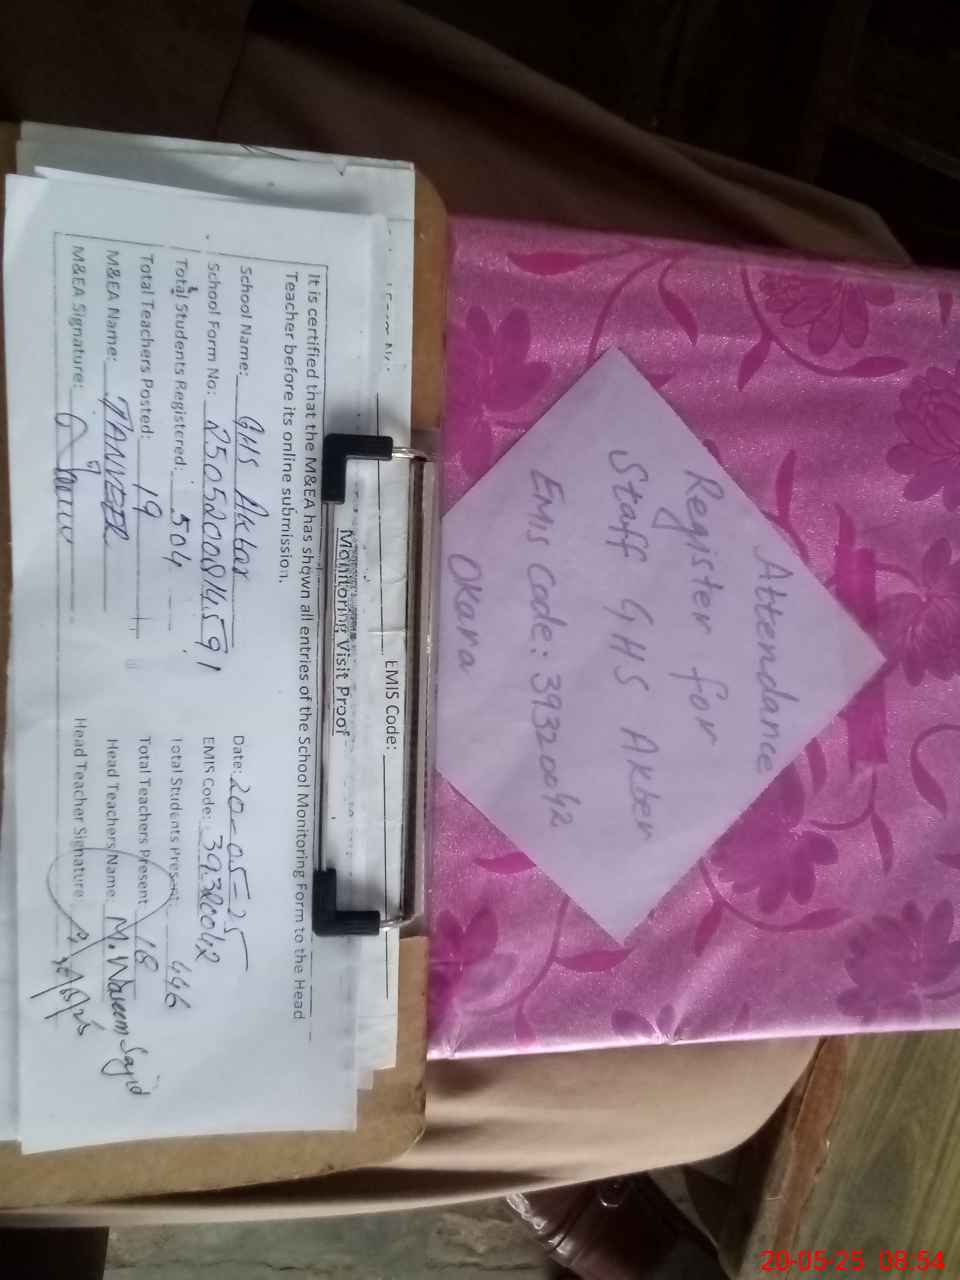 Attendance
Register for
Staff GHS Akber
EMIS Code: 39320042
Okara
EMIS Code:
Monitoring Visit Proof
It is certified that the M&EA has shown all entries of the School Monitoring Form to the Head
Teacher before its online submission.
School Name: GHS Akbar Date: 20-05-25
School Form No: EMIS Code: 39320042
Total Students Registered: 504 Total Students Present: 446
Total Teachers Posted: 19 Total Teachers Present 18
M&EA Name: TANVEER Head Teachers Name: M. Waseem Sajid
M&EA Signature: Head Teacher Signature:
20-05-25 08:54